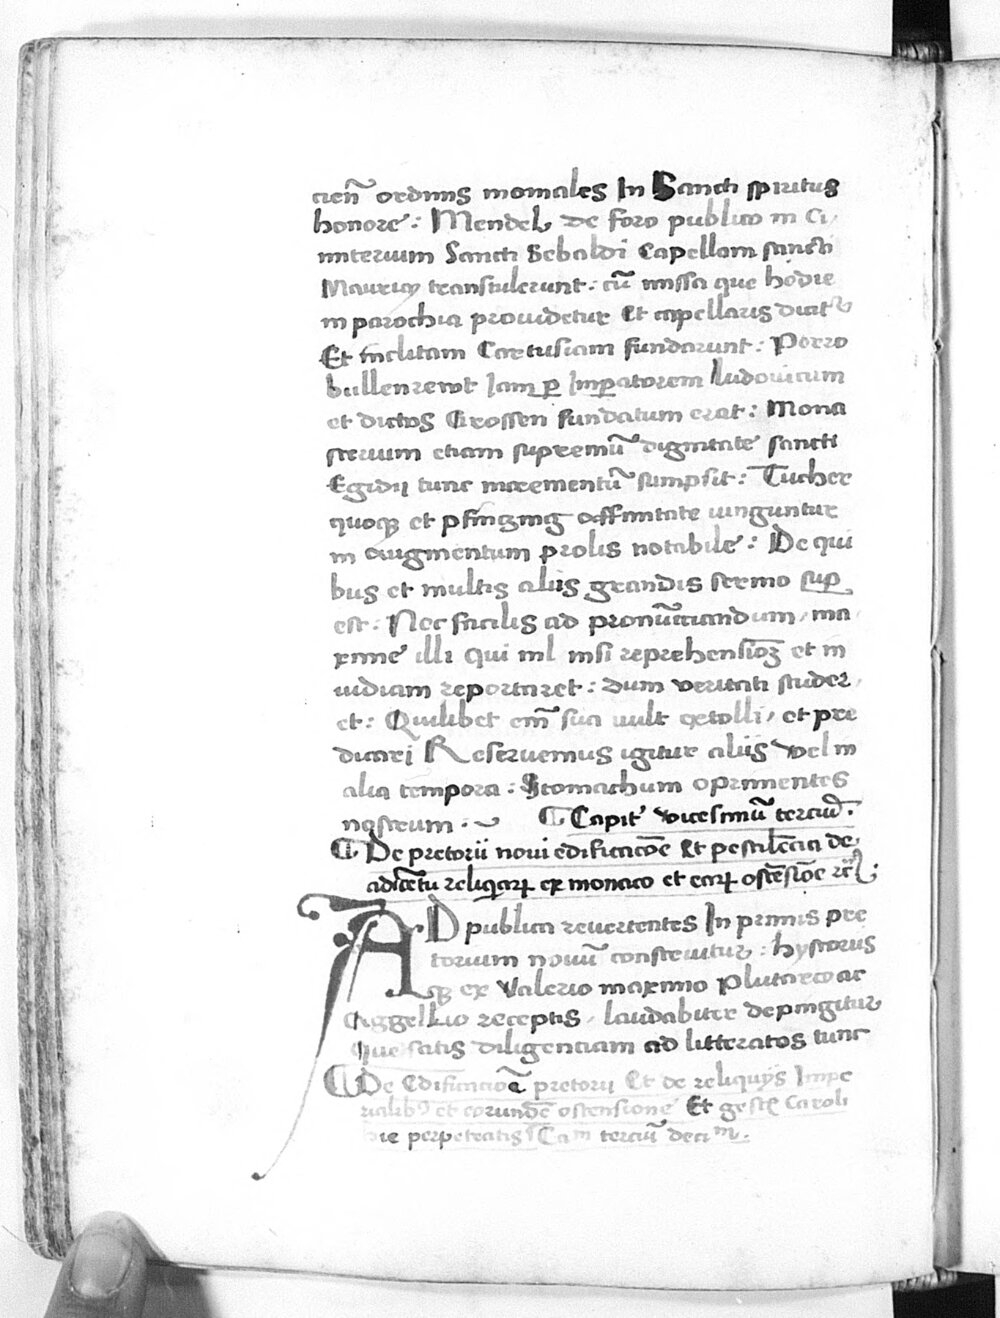 cieñ ordinis moniales In Sancti spiritus
honore : Mendel de foro publico in Ci
miterium Sancti Sebaldi Capellam sancti
Mauricy transtulerunt : cū missa que hodie
in parochia providetur Et capellaris dicitr
Et inclitam Cartusiam fundarunt : Porro
bullenrewt Jam p Imparatorem ludovicum
et dictos Grossen fundatum erat : Mona
sterium etiam supremū dignitate sancti
Egidii tunc incrementū sumpsit : Tucher
quoqꝫ et pfinczing affinitate iunguntur
in augmentum prolis notabile : De qui
bus et multis aliis grandis sermo sup
est : Nec facilis ad pronūciandum / ma
xime illi qui nil nisi reprehensioꝫ et in
uidiam reportaret : dum veritati studer
et : Quilibet em̄ sua vult extolli / et pre
dicari Reservemus igitur aliis vel in
alia tempora : Stomachum oprimentes
nostrum . Capit vicesimū terciū .
De pretorii novi edificacōe Et pestilēcia de
adventu reliquiarꝝ ex monaco et earꝝ ostēsiōe rc̄ :
AD publica revertentes In primis pre
torium novū construitur : hystorijs
qꝫ ex Valerio maximo Plutarco ac
Aggellio receptis / laudabiter depingitur
Que satis diligenciam ad litteratos tunc
De Edificacioē pretorii Et de reliquijs Impe
rialibꝯ et eorundē ostensione Et gestꝭ Caroli
hie perpetratis Cam terciū decim .